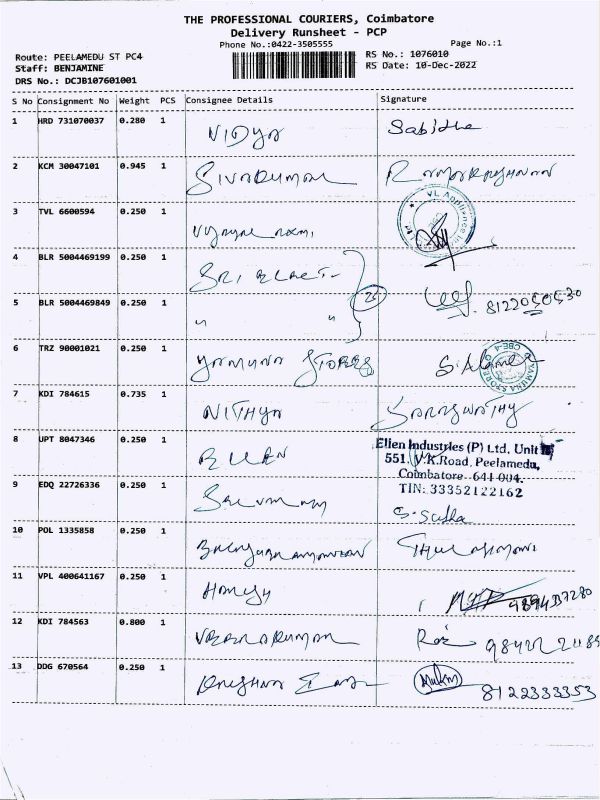 THE PROFESSIONAL COURIERS, Coimbatore
Delivery Runsheet - PCP
Phone No.:0422-3505555
Page No.:1
Route: PEELAMEDU ST PC4
RS No.: 1076010
Staff: BENJAMINE
RS Date: 10-Dec-2022
DRS No.: DCJB107601001
S No Consignment No Weight PCS Consignee Details Signature
1 HRD 731070037 0.280 1 VIDYA Sabitha
2 KCM 30047101 0.945 1 SIVAKUMAR RAMAKRISHNAN
3 TVL 6600594 0.250 1
VL Appliance
4 BLR 5004469199 0.250 1 SRI
5 BLR 5004469849 0.250 1 " "
6 TRZ 90001021 0.250 1 YAMUNA STORES
YAMUNA STORE CBE-4
7 KDI 784615 0.735 1 NITHYA SARASWATHY
8 UPT 8047346 0.250 1 ELLEN
Ellen Industries (P) Ltd. Unit
551, V.K.Road, Peelamedu,
Coimbatore - 641 004.
TIN: 33352122162
9 EDQ 22726336 0.250 1 S. Sudha
10 POL 1335858 0.250 1 THULASIMANI
11 VPL 400641167 0.250 1
12 KDI 784563 0.800 1 VEERAKUMAR
13 DDG 670564 0.250 1 8122333353